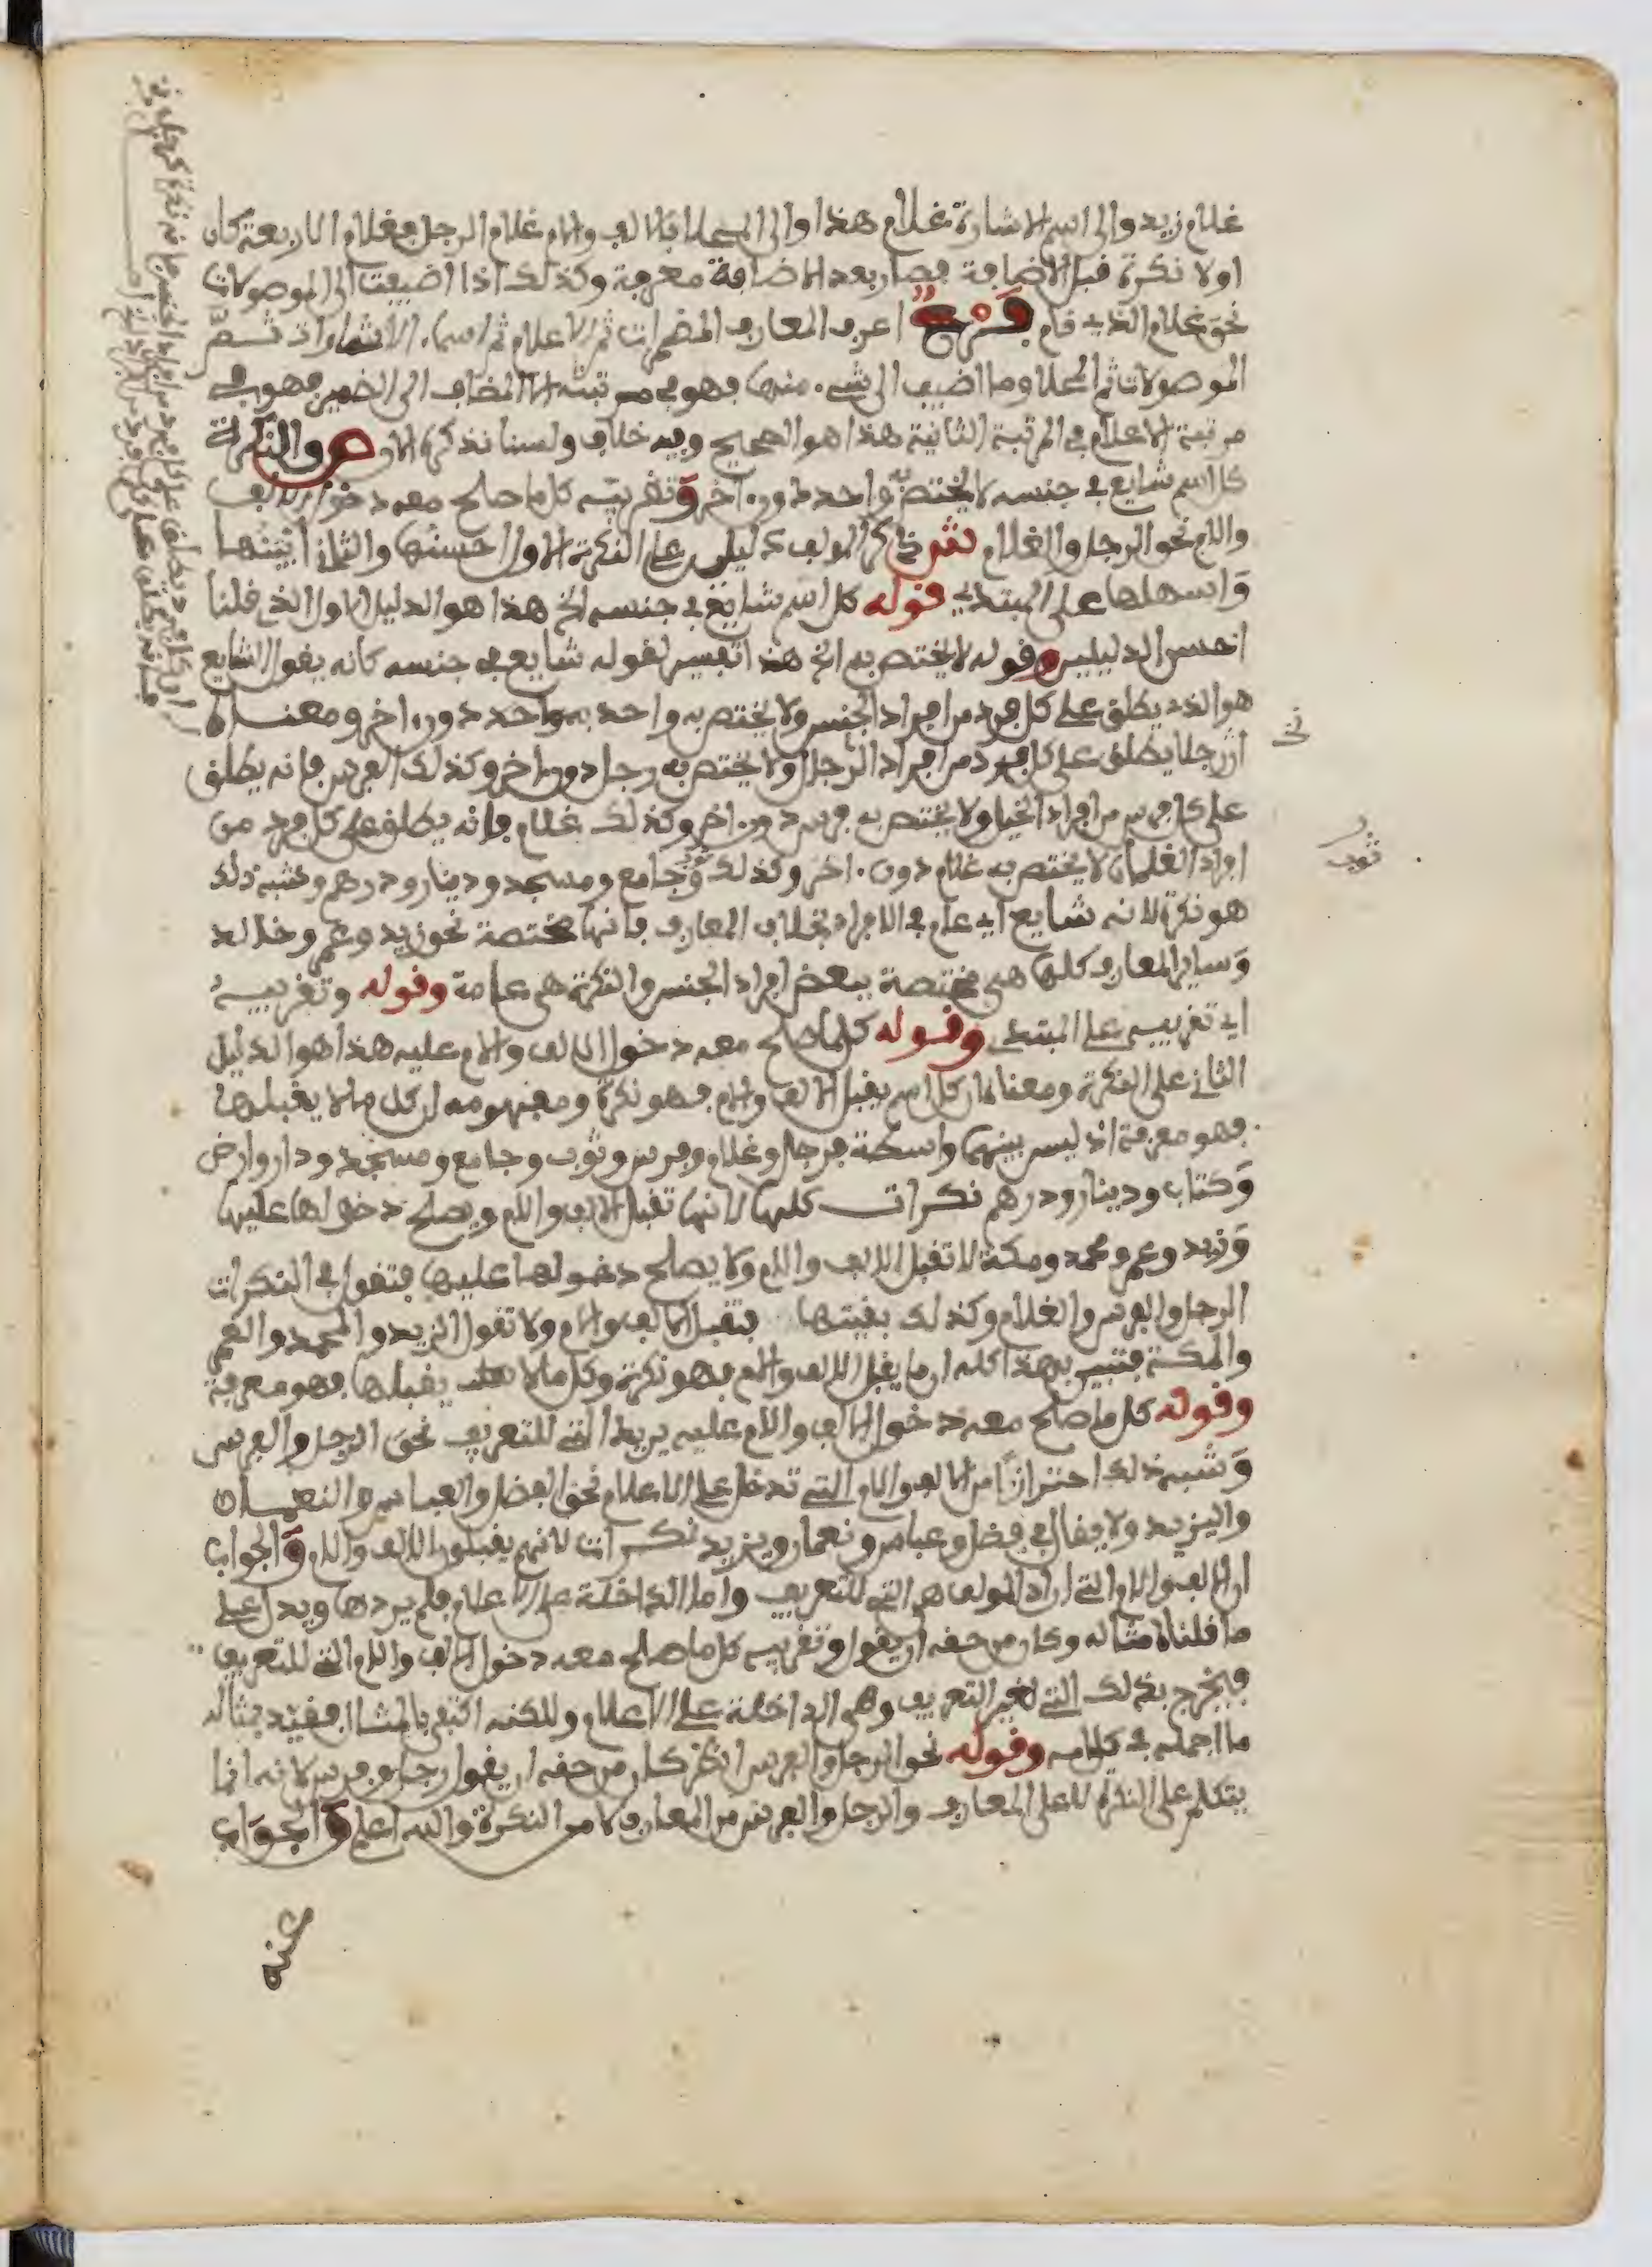 غلام زيد والى اسم الاشارة غلام هذا والى المحلا بالالف والام غلام الرجل فغلام الاربعة كان
اولا نكرة قبل الاضافة فصار بعد الاضافة معرفة وكذلك اذا اضيفت الى الموصولات
نحو غلام الذي قام فرع اعرف المعارف المضمرات ثم الاعلام ثم اسماء الاشارات ثم
الموصولات ثم المحلا وما اضيف الى شيء منها فهو في مرتبته الا المضاف الى الضمير فهو في
مرتبة الاعلام في المرتبة الثانية هذا هو الصحيح وفيه خلاف ولسنا نذكره الان ص والنكرة
كل اسم شايع في جنسه لا يختص به واحد دون اخر وتقريبه كل ما صلح معه دخول الالف
واللام نحو الرجل والغلام ش ذكر المولف دليلين على النكرة الاول احسنها والثاني ابينها
واسهلها على المبتدي قوله كل اسم شايع في جنسه الخ هذا هو الدليل الاول الذي قلنا
احسن الدليلين وقوله لا يختص به الخ هذا تفسير لقوله شايع في جنسه كانه يقول الشايع
هو الذي يطلق على كل فرد من افراد الجنس ولا يختص به واحد به واحد دون اخر ومعناه
ان رجلا يطلق على كل فرد من افراد الرجال ولا يختص به رجل دون اخر وكذلك الفرس فانه يطلق
على كل فرس من افراد الخيل ولا يختص به فرس دون اخر وكذلك غلام فانه يطلق على كل فرد من
افراد الغلمان لا يختص به غلام دون اخر وكذلك وجامع ومسجد ودينار ودرهم وشبه ذلك
هو نكرة لانه شايع اي عام في الافراد بخلاف المعارف فانها مختصة نحو زيد وعمر وخالد
وساير المعارف كلها هي مختصة ببعض افراد الجنس والنكرة هي عامة وقوله وتقريبه
اي تقريبه على المبتدي وقوله كلما صلح معه دخول الالف والام عليه هذا هو الدليل
الثاني على النكرة ومعناه ان كل اسم يقبل الالف والام فهو نكرة ومفهومه ان كل ما لا يقبلها
فهو معرفة اذ ليس بينهما واسطة فرجل وغلام وفرس وثوب وجامع ومسجد ودار وارض
وكتاب ودينار ودرهم نكرات كلها لانها تقبل الالف واللام ويصلح دخولها عليها
وزيد وعمر ومحمد ومكة لا تقبل الالف واللام ولا يصلح دخولها عليها فتقول في النكرات
الرجل والفرس والغلام وكذلك بقيتها فتقبل الالف والام ولا تقول الزيد والمحمد والعمر
والمكة فتبين بهذا كله ان ما يقبل الالف والام فهو نكرة وكل ما لا يقبلها فهو معرفة
وقوله كل ما صلح معه دخول الالف والام عليه يريد التي للتعريف نحو الرجل والفرس
وشبه ذلك احترازا من الالف والام التي تدخل على الاعلام نحو الفضل والعباس والنعمان
واليزيد ولا يقال في فضل وعباس ونعمان ويزيد نكرات لانهم يقبلون الالف واللام والجواب
ان الالف والام التي اراد المولف هي التي للتعريف واما الداخلة على الاعلام فلم يردها ويدل على
ما قلناه مثاله وكان من حقه ان يقول وتقريبه كل ما صلح معه دخول الالف واللام التي للتعريف
فيخرج بذلك التي لغير التعريف وهي الداخلة على الاعلام وللكنه اكتفى بالمثال فقيد بمثاله
ما اجمله في كلامه وقوله نحو الرجل والفرس انظر كان من حقه ان يقول رجل وفرس لانه انما
يتكلم على النكرة لا على المعارف والرجل والفرس من المعارف لا من النكرة والله اعلم والجواب
عنه
ثوب